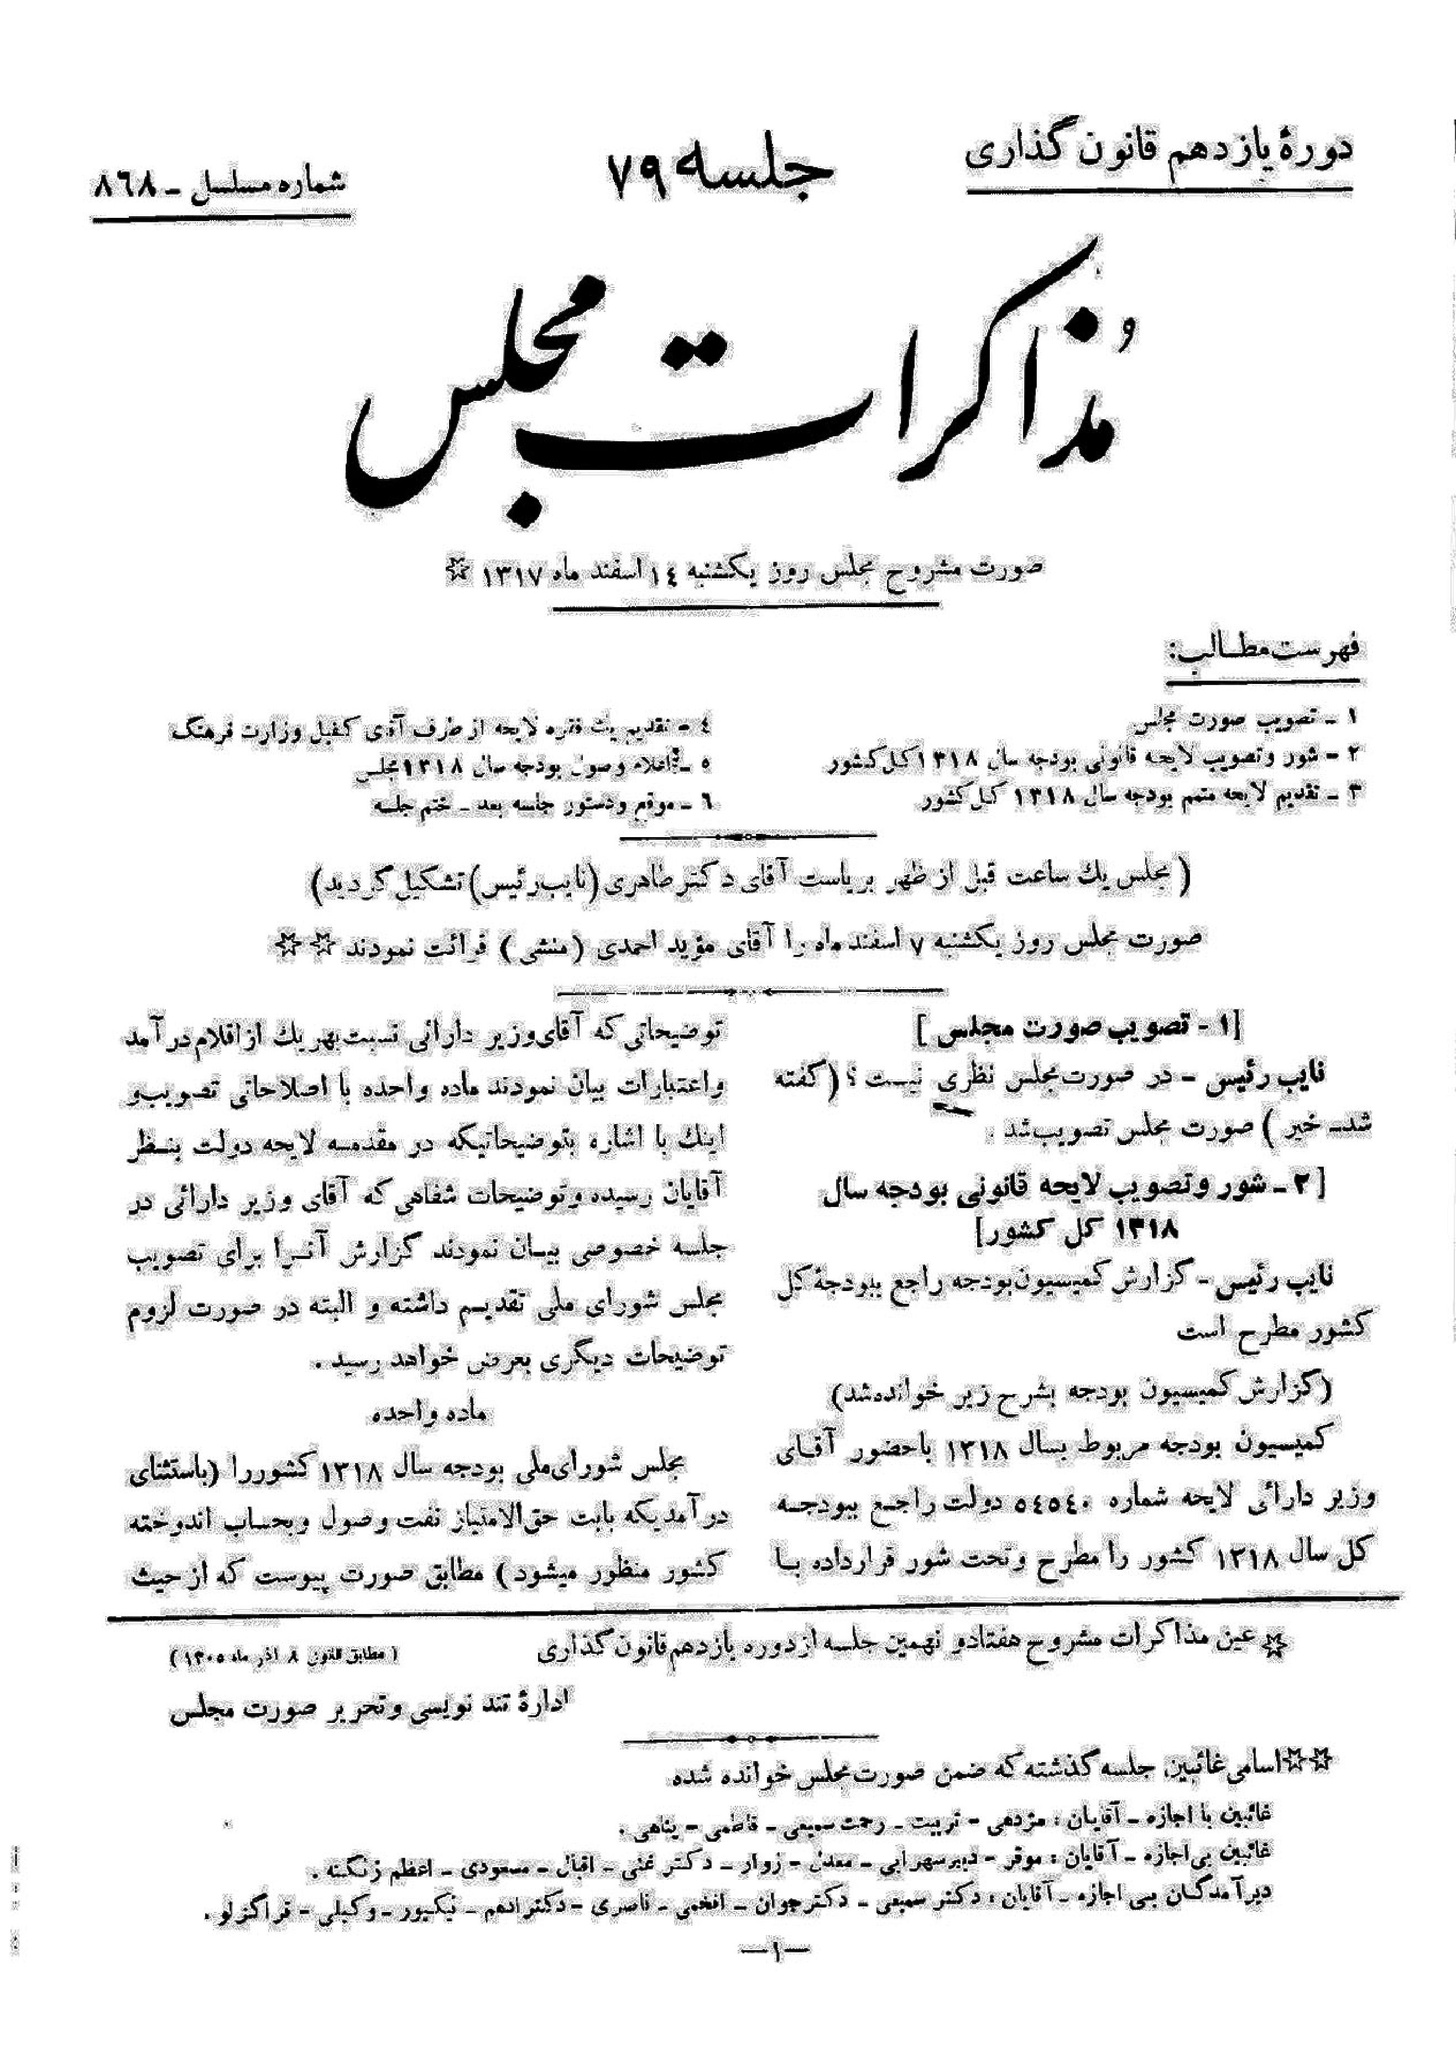 دورهٔ یازدهم قانون گذاری
جلسه ۷۹
شماره مسلسل ـ ۸٦۸
مذاکرات مجلس
صورت مشروح مجلس روز یکشنبه ۱٤ اسفند ماه ۱۳۱۷ ☆
فهرست مطالب:
۱ ـ تصویب صورت مجلس
۲ ـ شور و تصویب لایحه قانونی بودجه سال ۱۳۱۸ کل کشور
۳ ـ تقدیم لایحه متمم بودجه سال ۱۳۱۸ کل کشور
٤ ـ تقدیم یک فقره لایحه از طرف آقای کفیل وزارت فرهنگ
٥ ـ اعلام وصول بودجه سال ۱۳۱۸ مجلس
٦ ـ موقع و دستور جلسه بعد ـ ختم جلسه
( مجلس یك ساعت قبل از ظهر بریاست آقای دکتر طاهری (نایب رئیس) تشکیل گردید)
صورت مجلس روز یکشنبه ۷ اسفند ماه را آقای مؤید احمدی (منشی) قرائت نمودند ☆☆
[۱ - تصویب صورت مجلس ]
نایب رئیس - در صورت مجلس نظری نیست ؟ (گفته
شد ـ خیر ) صورت مجلس تصویب شد .
[ ۲ ـ شور و تصویب لایحه قانونی بودجه سال
۱۳۱۸ کل کشور]
نایب رئیس - گزارش کمیسیون بودجه راجع ببودجهٔ کل
کشور مطرح است
(گزارش کمیسیون بودجه بشرح زیر خوانده شد)
کمیسیون بودجه مربوط بسال ۱۳۱۸ با حضور آقای
وزیر دارائی لایحه شماره ٥٤٥٤۰ دولت راجع ببودجه
کل سال ۱۳۱۸ کشور را مطرح و تحت شور قرار داده با
توضیحاتی که آقای وزیر دارائی نسبت بهریك از اقلام درآمد
و اعتبارات بیان نمودند ماده واحده با اصلاحاتی تصویب و
اینك با اشاره بتوضیحاتیکه در مقدمه لایحه دولت بنظر
آقایان رسیده و توضیحات شفاهی که آقای وزیر دارائی در
جلسه خصوصی بیان نمودند گزارش آنرا برای تصویب
مجلس شورای ملی تقدیم داشته و البته در صورت لزوم
توضیحات دیگری بعرض خواهد رسید .
ماده واحده
مجلس شورای ملی بودجه سال ۱۳۱۸ کشور را (باستثنای
درآمدیکه بابت حق الامتیاز نفت وصول و بحساب اندوخته
کشور منظور میشود ) مطابق صورت پیوست که از حیث
☆ عین مذاکرات مشروح هفتاد و نهمین جلسه از دوره یازدهم قانون گذاری
( مطابق قانون ۸ آذر ماه ۱۳۰٥)
ادارهٔ تند نویسی و تحریر صورت مجلس
☆☆ اسامی غائبین جلسه گذشته که ضمن صورت مجلس خوانده شده
غائبین با اجازه ـ آقایان : مژدهی - تربیت ـ رحمت سمیعی ـ فاطمی - پناهی .
غائبین بی اجازه ـ آقایان : موقر - دبیر سهرابی ـ معدل - زوار ـ دکتر غنی ـ اقبال ـ مسعودی ـ اعظم زنگنه .
دیرآمدگان بی اجازه ـ آقایان : دکتر سمیعی ـ دکتر جوان ـ افخمی ـ ناصری - دکتر ادهم ـ نیکپور ـ وکیلی - قراگزلو .
—۱—